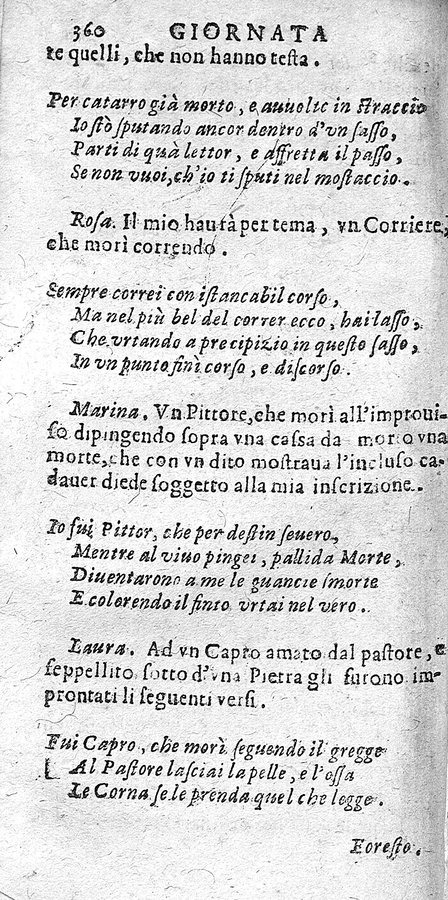 360 GIORNATA
te quelli, che non hanno testa.
Per catarro già morto, e auuolto in straccio
Io stò sputando ancor dentro d'vn sasso,
Parti di quà lettor, e affretta il passo,
Se non vuoi, ch'io ti sputi nel mostaccio.
Rosa. Il mio haurà per tema, vn Corriere,
che morì correndo.
Sempre correi con istancabil corso,
Ma nel più bel del correr ecco, hai lasso,
Che vrtando a precipizio in questo sasso,
In vn punto finì corso, e discorso.
Marina. Vn Pittore, che morì all'improui-
so dipingendo sopra vna cassa da morto vna
morte, che con vn dito mostraua l'incluso ca-
dauer diede soggetto alla mia inscrizione.
Io fui Pittor, che per destin seuero,
Mentre al viuo pingei, pallida Morte,
Diuentarono a me le guancie smorte
E colorendo il finto vrtai nel vero.
Laura. Ad vn Capro amato dal pastore, e
seppellito sotto d'vna Pietra gli furono im-
prontati li seguenti versi.
Fui Capro, che morì seguendo il gregge
Al Pastore lasciai la pelle, e l'ossa
Le Corna se le prenda quel che legge.
Foresto.